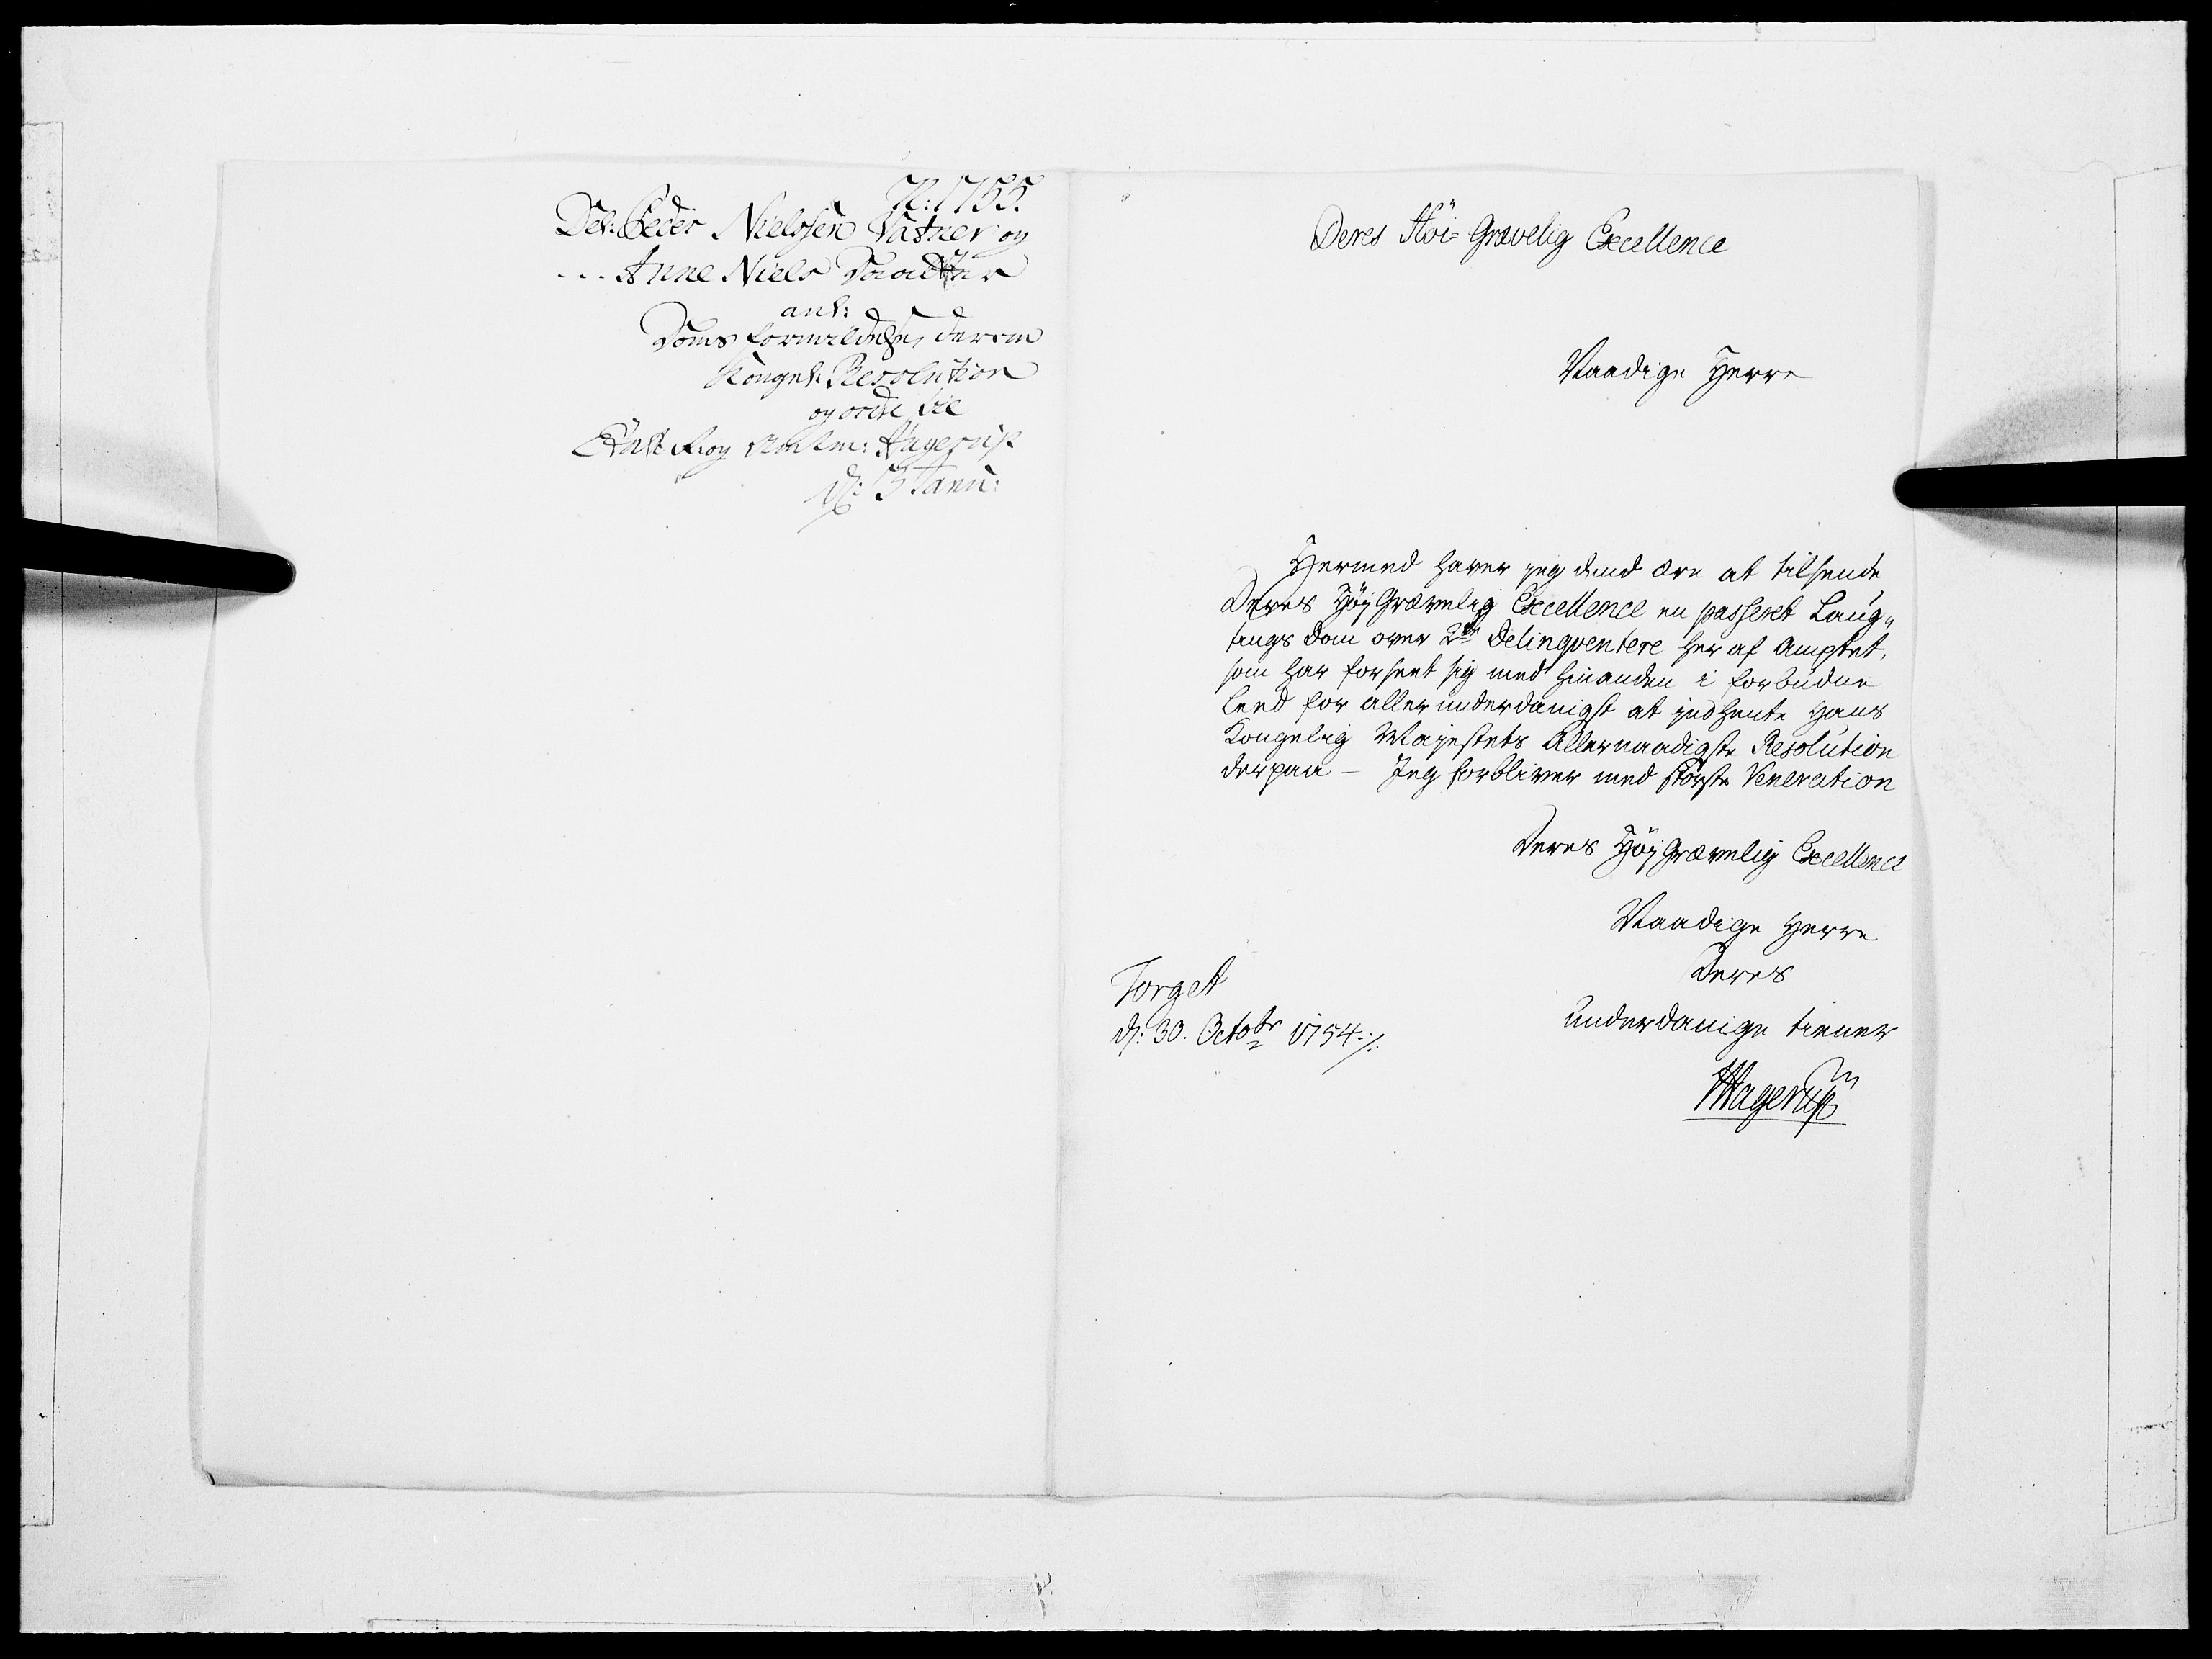 N: 1755.
Del: Peder Nielssen Vasner og
... Anne Niels Daatter
anl:
Doms formildelse, derom
Kongel: Resolution
og ordre til
Etats R: og Amtm: Hagerup
d: 3 Janu:
Deres Höi-Grævelig Excellence
Naadige Herre
Hermed haver jeg dend ære at tilsende
Deres HöjGrævelig Excellence en passeret Laug„
tings dom over 2de Delinqventere her af Amptet,
som har forseet sig med hinanden i forbudne
leed for allerunderdanigst at indhente Hans
Kongelig Majestets Allernaadigste Resolution
derpaa — Jeg forbliver med störste Veneration
Deres HöjGrævelig Excellence
Naadige Herre
Deres
underdanige tiener
Hagerup
Torget
d: 30. Octobr 1754 ./.